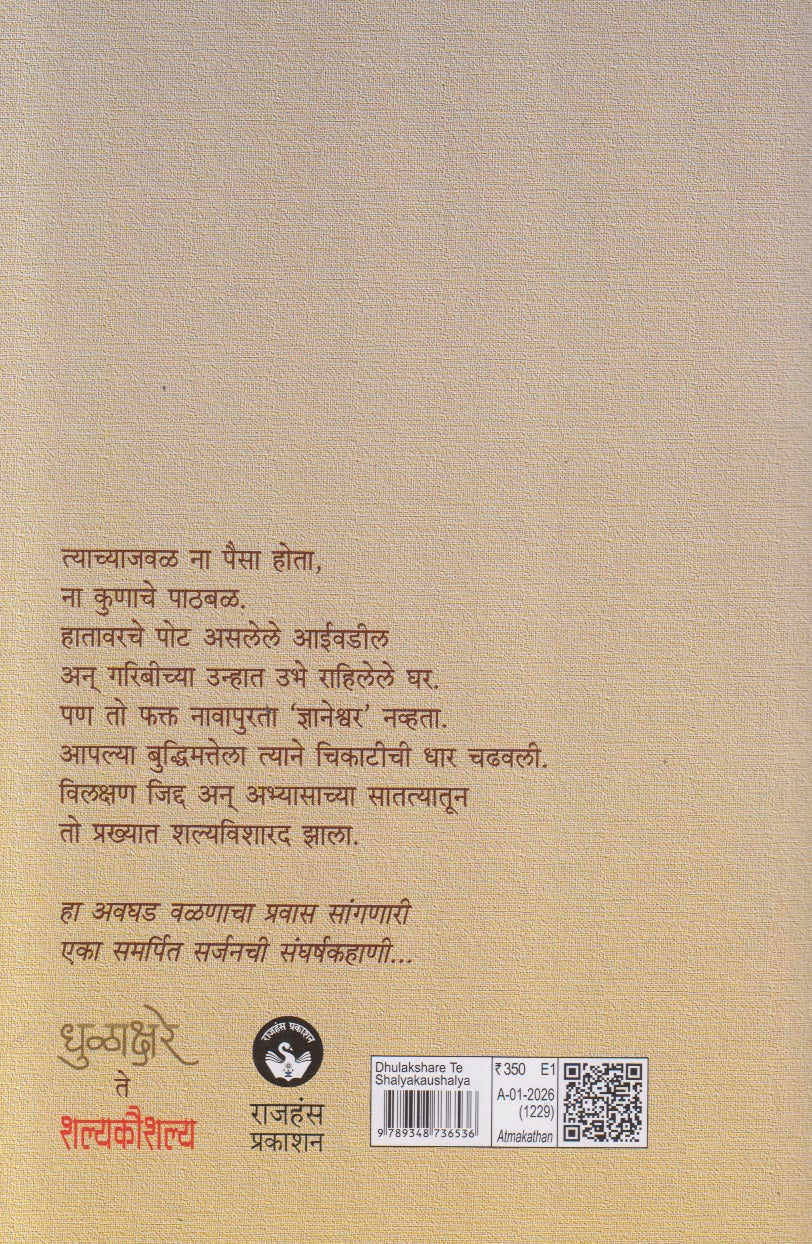 त्याच्याजवळ ना पैसा होता,
ना कुणाचे पाठबळ.
हातावरचे पोट असलेले आईवडील
अन् गरिबीच्या उन्हात उभे राहिलेले घर.
पण तो फक्त नावापुरता ‘ज्ञानेश्वर’ नव्हता.
आपल्या बुद्धिमत्तेला त्याने चिकाटीची धार चढवली.
विलक्षण जिद्द अन् अभ्यासाच्या सातत्यातून
तो प्रख्यात शल्यविशारद झाला.
हा अवघड वळणाचा प्रवास सांगणारी
एका समर्पित सर्जनची संघर्षकहाणी...
धुळाक्षरे
ते
शल्यकौशल्य
राजहंस प्रकाशन
राजहंस
प्रकाशन
Dhulakshare Te
Shalyakaushalya
9 789348 736536
₹350 E1
A-01-2026
(1229)
Atmakathan